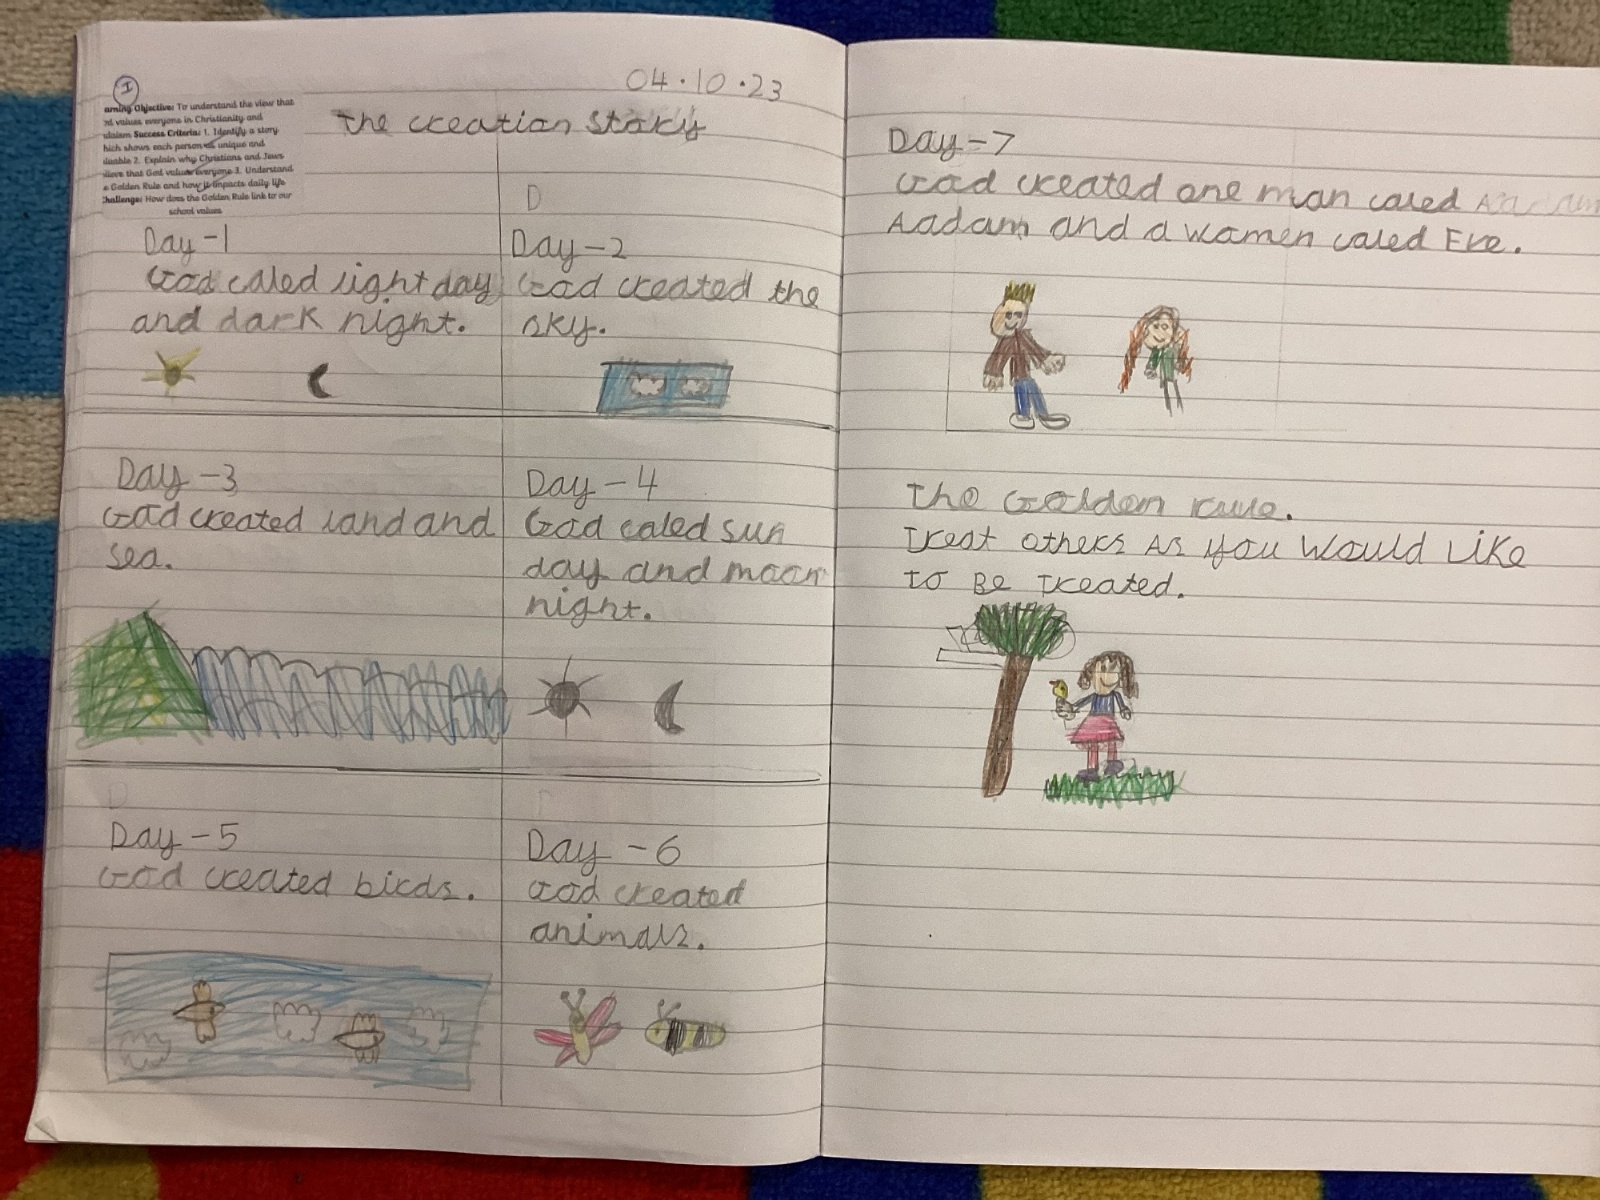 04.10.23
I
arning Objective: To understand the view that
values everyone in Christianity and
Success Criteria: 1. Identify a story
hich shows each person is unique and
luable 2. Explain why Christians and Jews
lieve that God values everyone 3. Understand
e Golden Rule and how it impacts daily life
Challenge: How does the Golden Rule link to our
school values
The creation story
D
Day-1
God caled light day
and dark night.
Day-2
God created the
sky.
Day-3
God created land and
sea.
Day-4
God caled sun
day and moon
night.
Day-5
God created birds.
Day-6
God created
animals.
Day-7
God created one man caled
Aadam and a women caled Eve.
The Golden rule.
Treat others As you Would Like
To Be Treated.